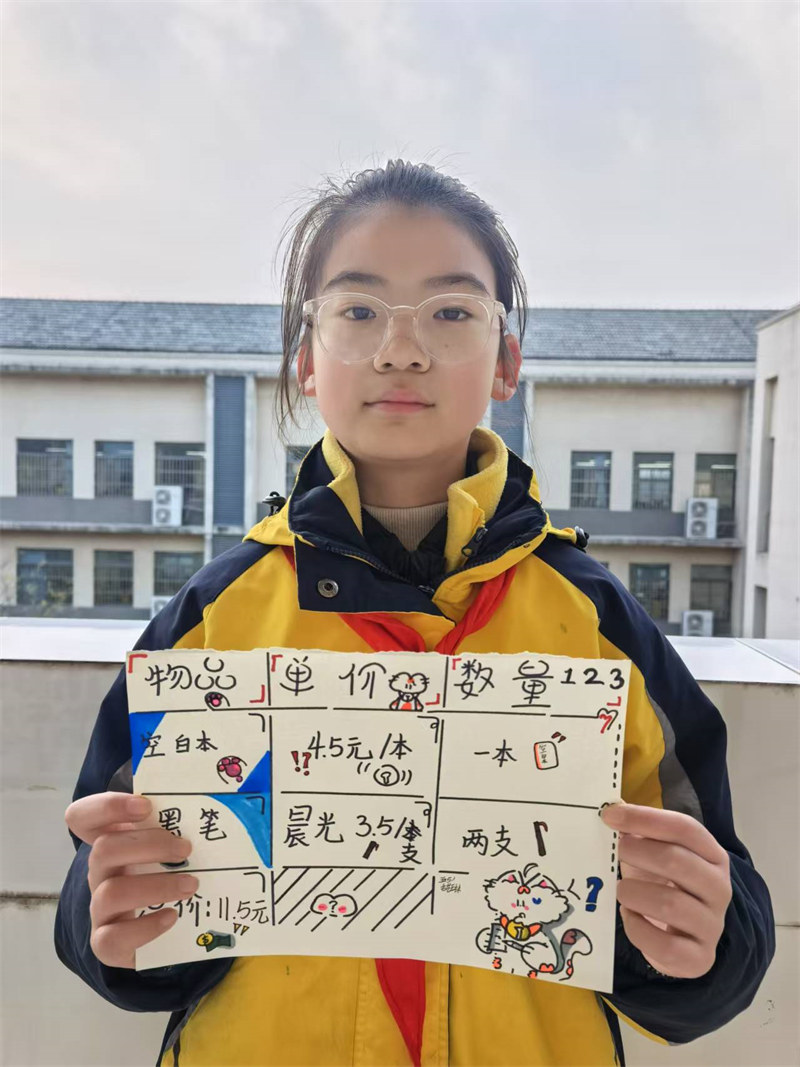 物品 单价 数量 123
空白本 4.5元/本 一本
黑笔 晨光 3.5/支 两支
价:11.5元